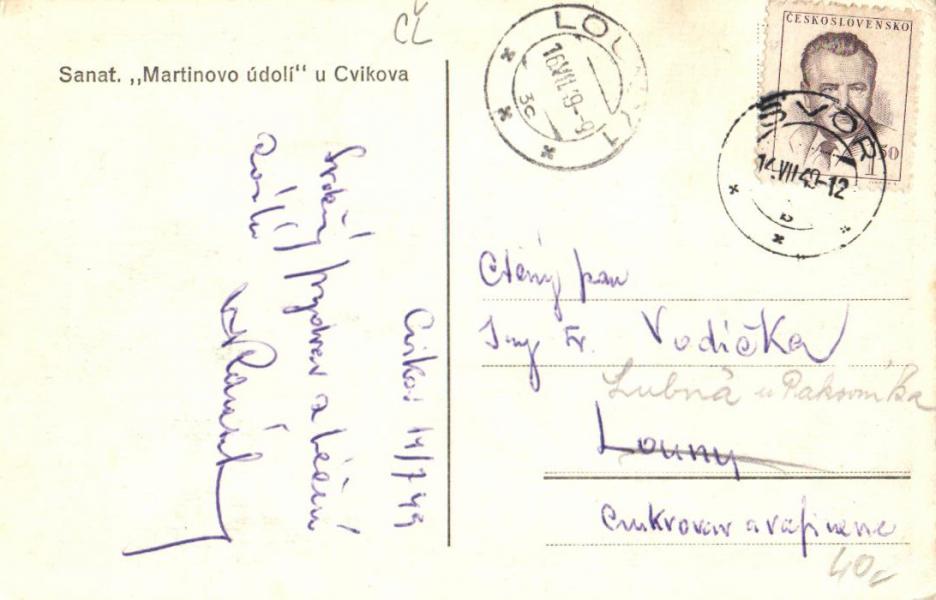 ČL
Sanat. „Martinovo údolí“ u Cvikova
LOUNY 1
16.VII.49-9
3c
ČESKOSLOVENSKO
1 50
SVOR
14.VII.49-12
b
Cvikov 14/7 49
Srdečný pozdrav z léčení
zasílá
Ctěný pan
Ing Fr. Vodička
Lubná u Rakovníka
Louny
Cukrovar a rafinerie
40,-